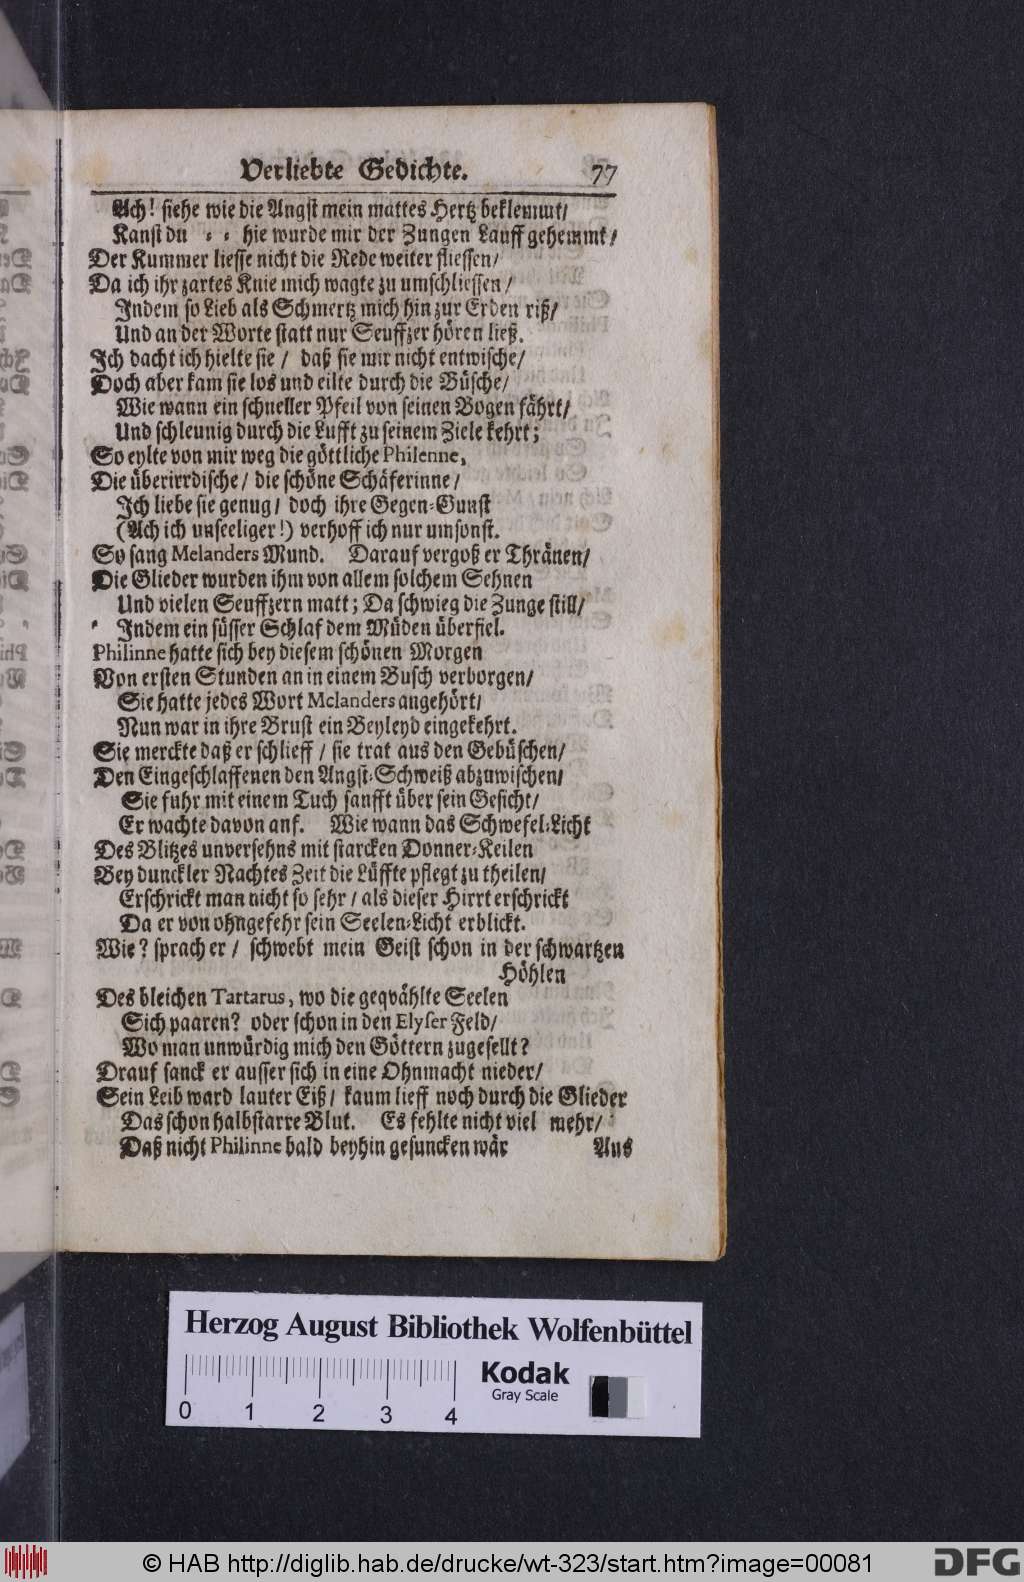 Verliebte Gedichte. 77
Ach! siehe wie die Angst mein mattes Hertz beklemmt/
Kanst du = = hie wurde mir der Zungen Lauff gehemmt/
Der Kummer liesse nicht die Rede weiter fliessen/
Da ich ihr zartes Knie mich wagte zu umschliessen/
Indem so Lieb als Schmertz mich hin zur Erden riß/
Und an der Worte statt nur Seuffzer hören ließ.
Ich dacht ich hielte sie/ daß sie mir nicht entwische/
Doch aber kam sie los und eilte durch die Büsche/
Wie wann ein schneller Pfeil von seinen Bogen fährt/
Und schleunig durch die Lufft zu seinem Ziele kehrt;
So eylte von mir weg die göttliche Philenne,
Die überirrdische/ die schöne Schäferinne/
Ich liebe sie genug/ doch ihre Gegen=Gunst
(Ach ich unseeliger!) verhoff ich nur umsonst.
So sang Melanders Mund. Darauf vergoß er Thränen/
Die Glieder wurden ihm von allem solchem Sehnen
Und vielen Seuffzern matt; Da schwieg die Zunge still/
Indem ein süsser Schlaf dem Müden überfiel.
Philinne hatte sich bey diesem schönen Morgen
Von ersten Stunden an in einem Busch verborgen/
Sie hatte jedes Wort Melanders angehört/
Nun war in ihre Brust ein Beyleyd eingekehrt.
Sie merckte daß er schlieff/ sie trat aus den Gebüschen/
Den Eingeschlaffenen den Angst=Schweiß abzuwischen/
Sie fuhr mit einem Tuch sanfft über sein Gesicht/
Er wachte davon auf. Wie wann das Schwefel=Licht
Des Blitzes unversehns mit starcken Donner=Keilen
Bey dunckler Nachtes Zeit die Lüffte pflegt zu theilen/
Erschrickt man nicht so sehr/ als dieser Hirrt erschrickt
Da er von ohngefehr sein Seelen=Licht erblickt.
Wie? sprach er/ schwebt mein Geist schon in der schwartzen
Höhlen
Des bleichen Tartarus, wo die geqvählte Seelen
Sich paaren? oder schon in den Elyser Feld/
Wo man unwürdig mich den Göttern zugesellt?
Drauf sanck er ausser sich in eine Ohnmacht nieder/
Sein Leib ward lauter Eiß/ kaum lieff noch durch die Glieder
Das schon halbstarre Blut. Es fehlte nicht viel mehr/
Daß nicht Philinne bald beyhin gesuncken wär
Aus
Herzog August Bibliothek Wolfenbüttel
Kodak
Gray Scale
0 1 2 3 4
© HAB http://diglib.hab.de/drucke/wt-323/start.htm?image=00081
DFG